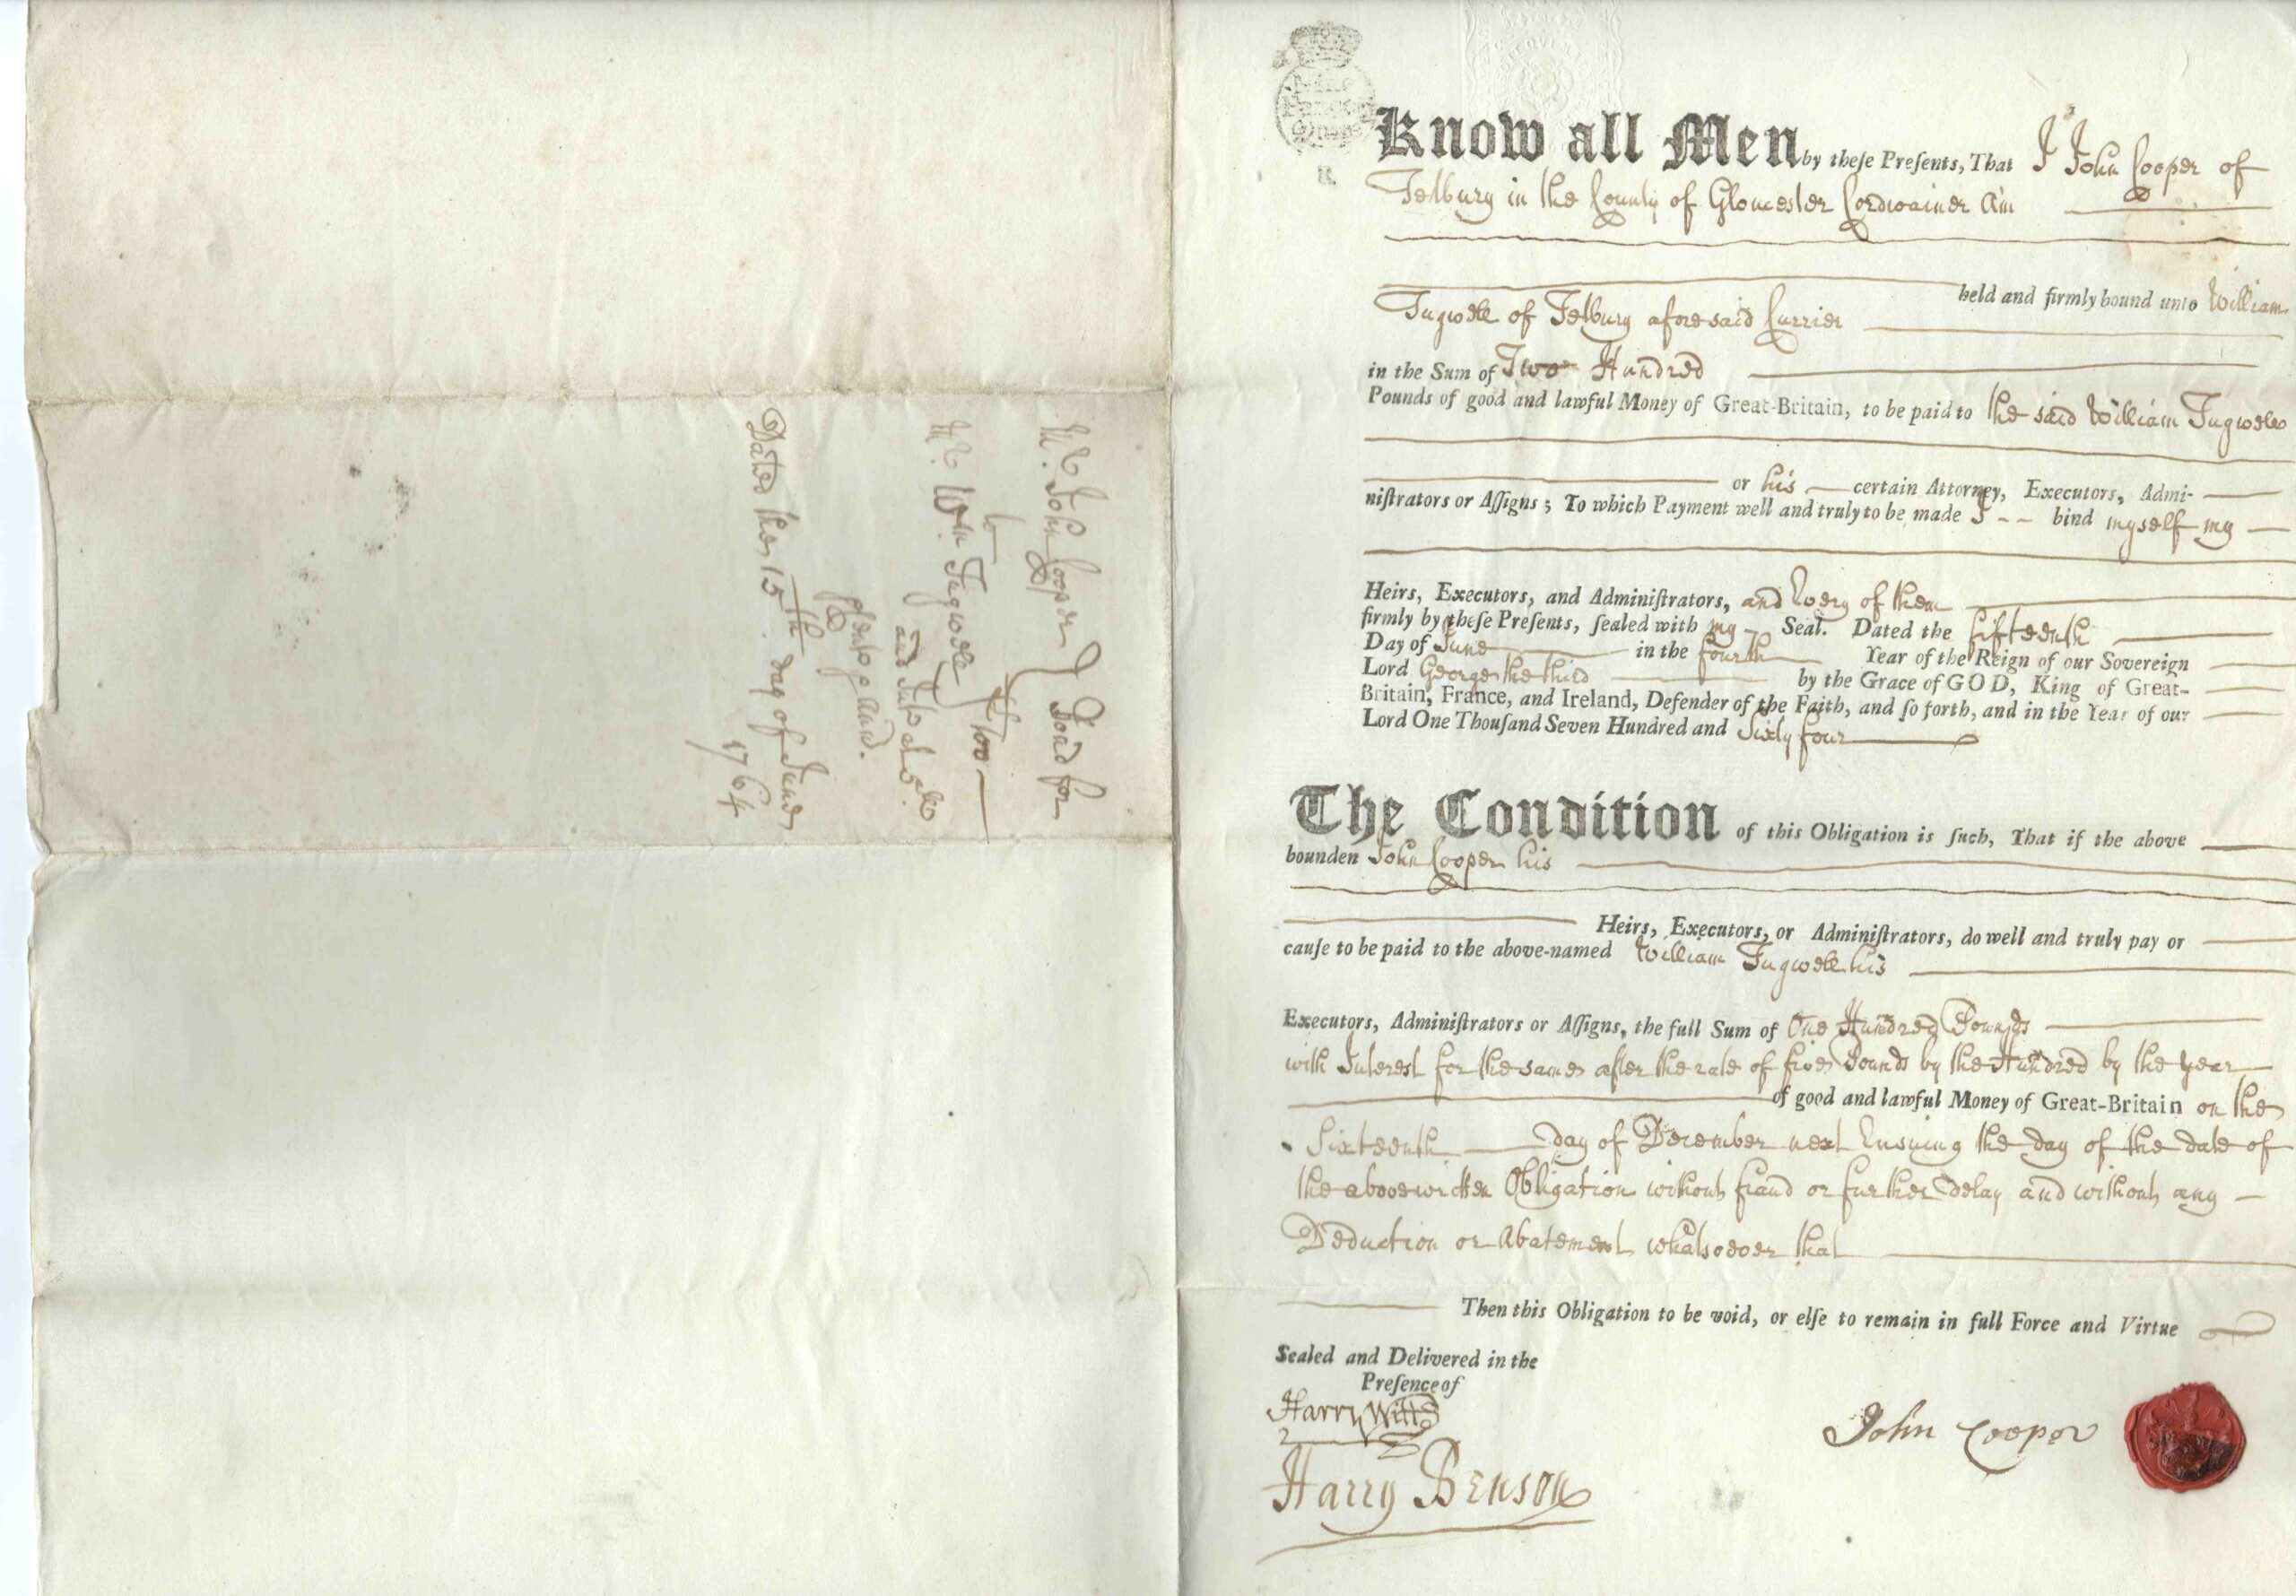 Mr. John Cooper } Bond for
to
Mr. Wm. Tugwell } £100 —
and Int. at 5
p Cent p Ann.
Dated the 15th day of June
1764
Know all Men by theſe Preſents, That I John Cooper of
Tetbury in the County of Gloucester Cordwainer Am
held and firmly bound unto William
Tugwell of Tetbury aforesaid Currier
in the Sum of Two Hundred
Pounds of good and lawful Money of Great-Britain, to be paid to the said William Tugwell
or his certain Attorney, Executors, Admi-
niſtrators or Aſſigns; To which Payment well and truly to be made I -- bind myself my
Heirs, Executors, and Adminiſtrators, and Every of them
firmly by theſe Preſents, ſealed with my Seal. Dated the fifteenth
Day of June in the fourth Year of the Reign of our Sovereign
Lord George the third by the Grace of GOD, King of Great-
Britain, France, and Ireland, Defender of the Faith, and ſo forth, and in the Year of our
Lord One Thouſand Seven Hundred and Sixty four
The Condition of this Obligation is ſuch, That if the above
bounden John Cooper his
Heirs, Executors, or Adminiſtrators, do well and truly pay or
cauſe to be paid to the above-named William Tugwell his
Executors, Adminiſtrators or Aſſigns, the full Sum of One Hundred Pounds
with Interest for the same after the rate of five Pounds by the Hundred by the year
of good and lawful Money of Great-Britain on the
Sixteenth day of December next Ensuing the day of the date of
the abovewritten Obligation without fraud or further delay and without any
Deduction or Abatement whatsoever that
Then this Obligation to be void, or elſe to remain in full Force and Virtue
Sealed and Delivered in the
Preſence of
Harry Witts
John Cooper
Harry Benson